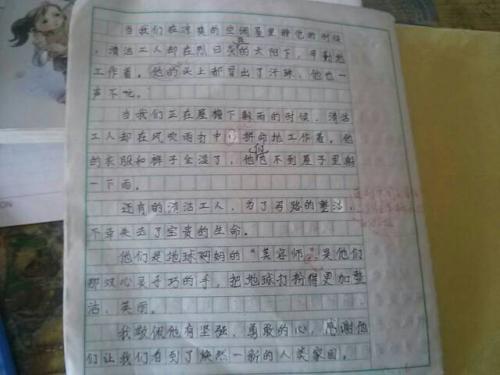 当我们在凉爽的空调屋里静觉的时候
，清洁工人却在烈日炎炎的太阳下，辛勤地
工作着。他的头上都冒出了汗珠，他也一
声不吭。
当我们正在屋檐下躲雨的时候，清洁
工人却在风吹雨打中拼命地工作着，他
的衣服和裤子全湿了，他却不到屋子里躲
一下雨。
还有的清洁工人，为了马路的整洁，
不幸失去了宝贵的生命。
他们是地球妈妈的“美容师”，是他们
那双心灵手巧的手，把地球打扮得更加整
洁、美丽。
我敬佩他有坚强、勇敢的心，感谢他
们让我们看到了焕然一新的人类家园。